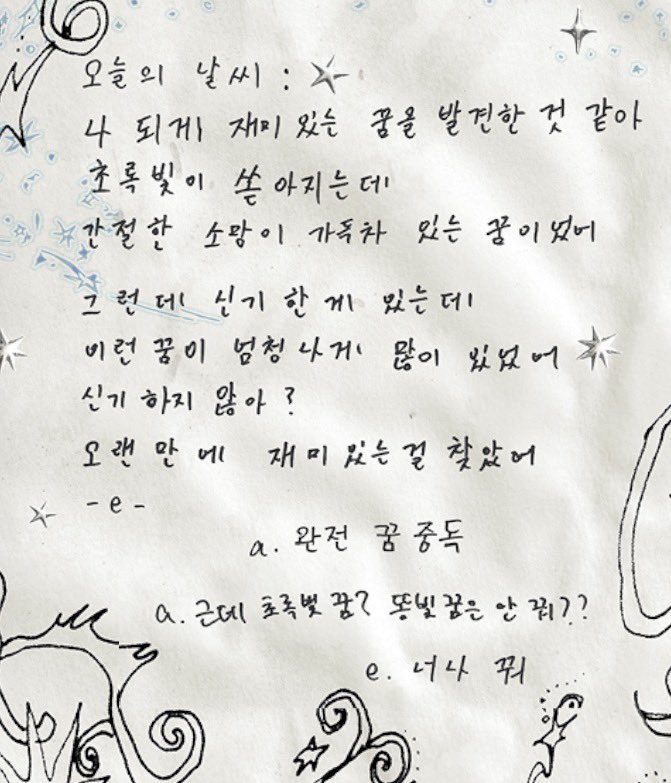 오늘의 날씨 :
나 되게 재미 있는 꿈을 발견한 것 같아
초록빛이 쏟아지는데
간절한 소망이 가득차 있는 꿈이었어
그런데 신기한게 있는데
이런 꿈이 엄청나게 많이 있었어
신기하지 않아?
오랜만에 재미있는걸 찾았어
- e -
a. 완전 꿈 중독
a. 근데 초록빛 꿈? 똥빛꿈은 안 꿔??
e. 너나 꿔